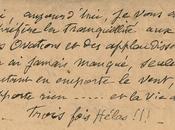 , aujourd'hui, je vous a
préfère la Tranquillité aux
Ovations et des applaudiss
ai jamais manqué, seule
autant en emporte le vent,
pporte rien. _ et la vie a
Trois fois Hélas !!!